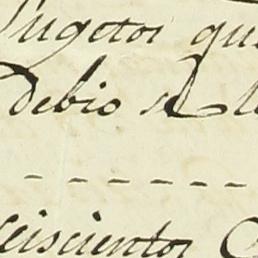 Sugetos qu
Debio el
seiscientos